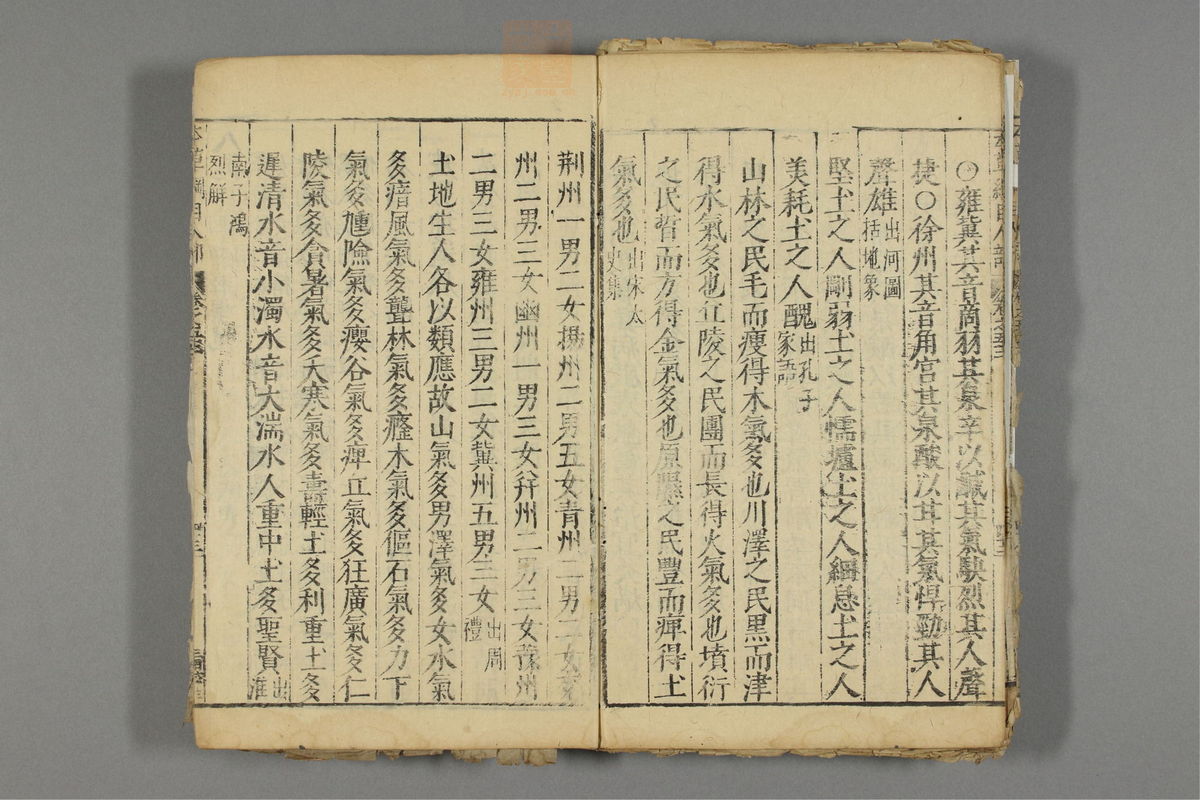 ○雍冀其音商羽其泉辛以鹹其氣駃烈其人聲
捷○徐州其音角宮其泉酸以甘其氣悍勁其人
聲雄出河圖括地象
堅土之人剛弱土之人懦壚土之人細息土之人
美耗土之人醜出孔子家語
山林之民毛而瘦得木氣多也川澤之民黑而津
得水氣多也丘陵之民團而長得火氣多也墳衍
之民晳而方得金氣多也原隰之民豐而痺得土
氣多也出宋太史集
荊州一男二女揚州二男五女青州二男二女兗
州二男三女幽州一男三女并州二男三女豫州
二男三女雍州三男二女冀州五男三女出周禮
土地生人各以類應故山氣多男澤氣多女水氣
多瘖風氣多聾林氣多癃木氣多傴石氣多力下
氣多尰險氣多癭谷氣多痺丘氣多狂廣氣多仁
陵氣多貪暑氣多夭寒氣多壽輕土多利重土多
遲清水音小濁水音大湍水人重中土多聖賢出淮
南子鴻烈解